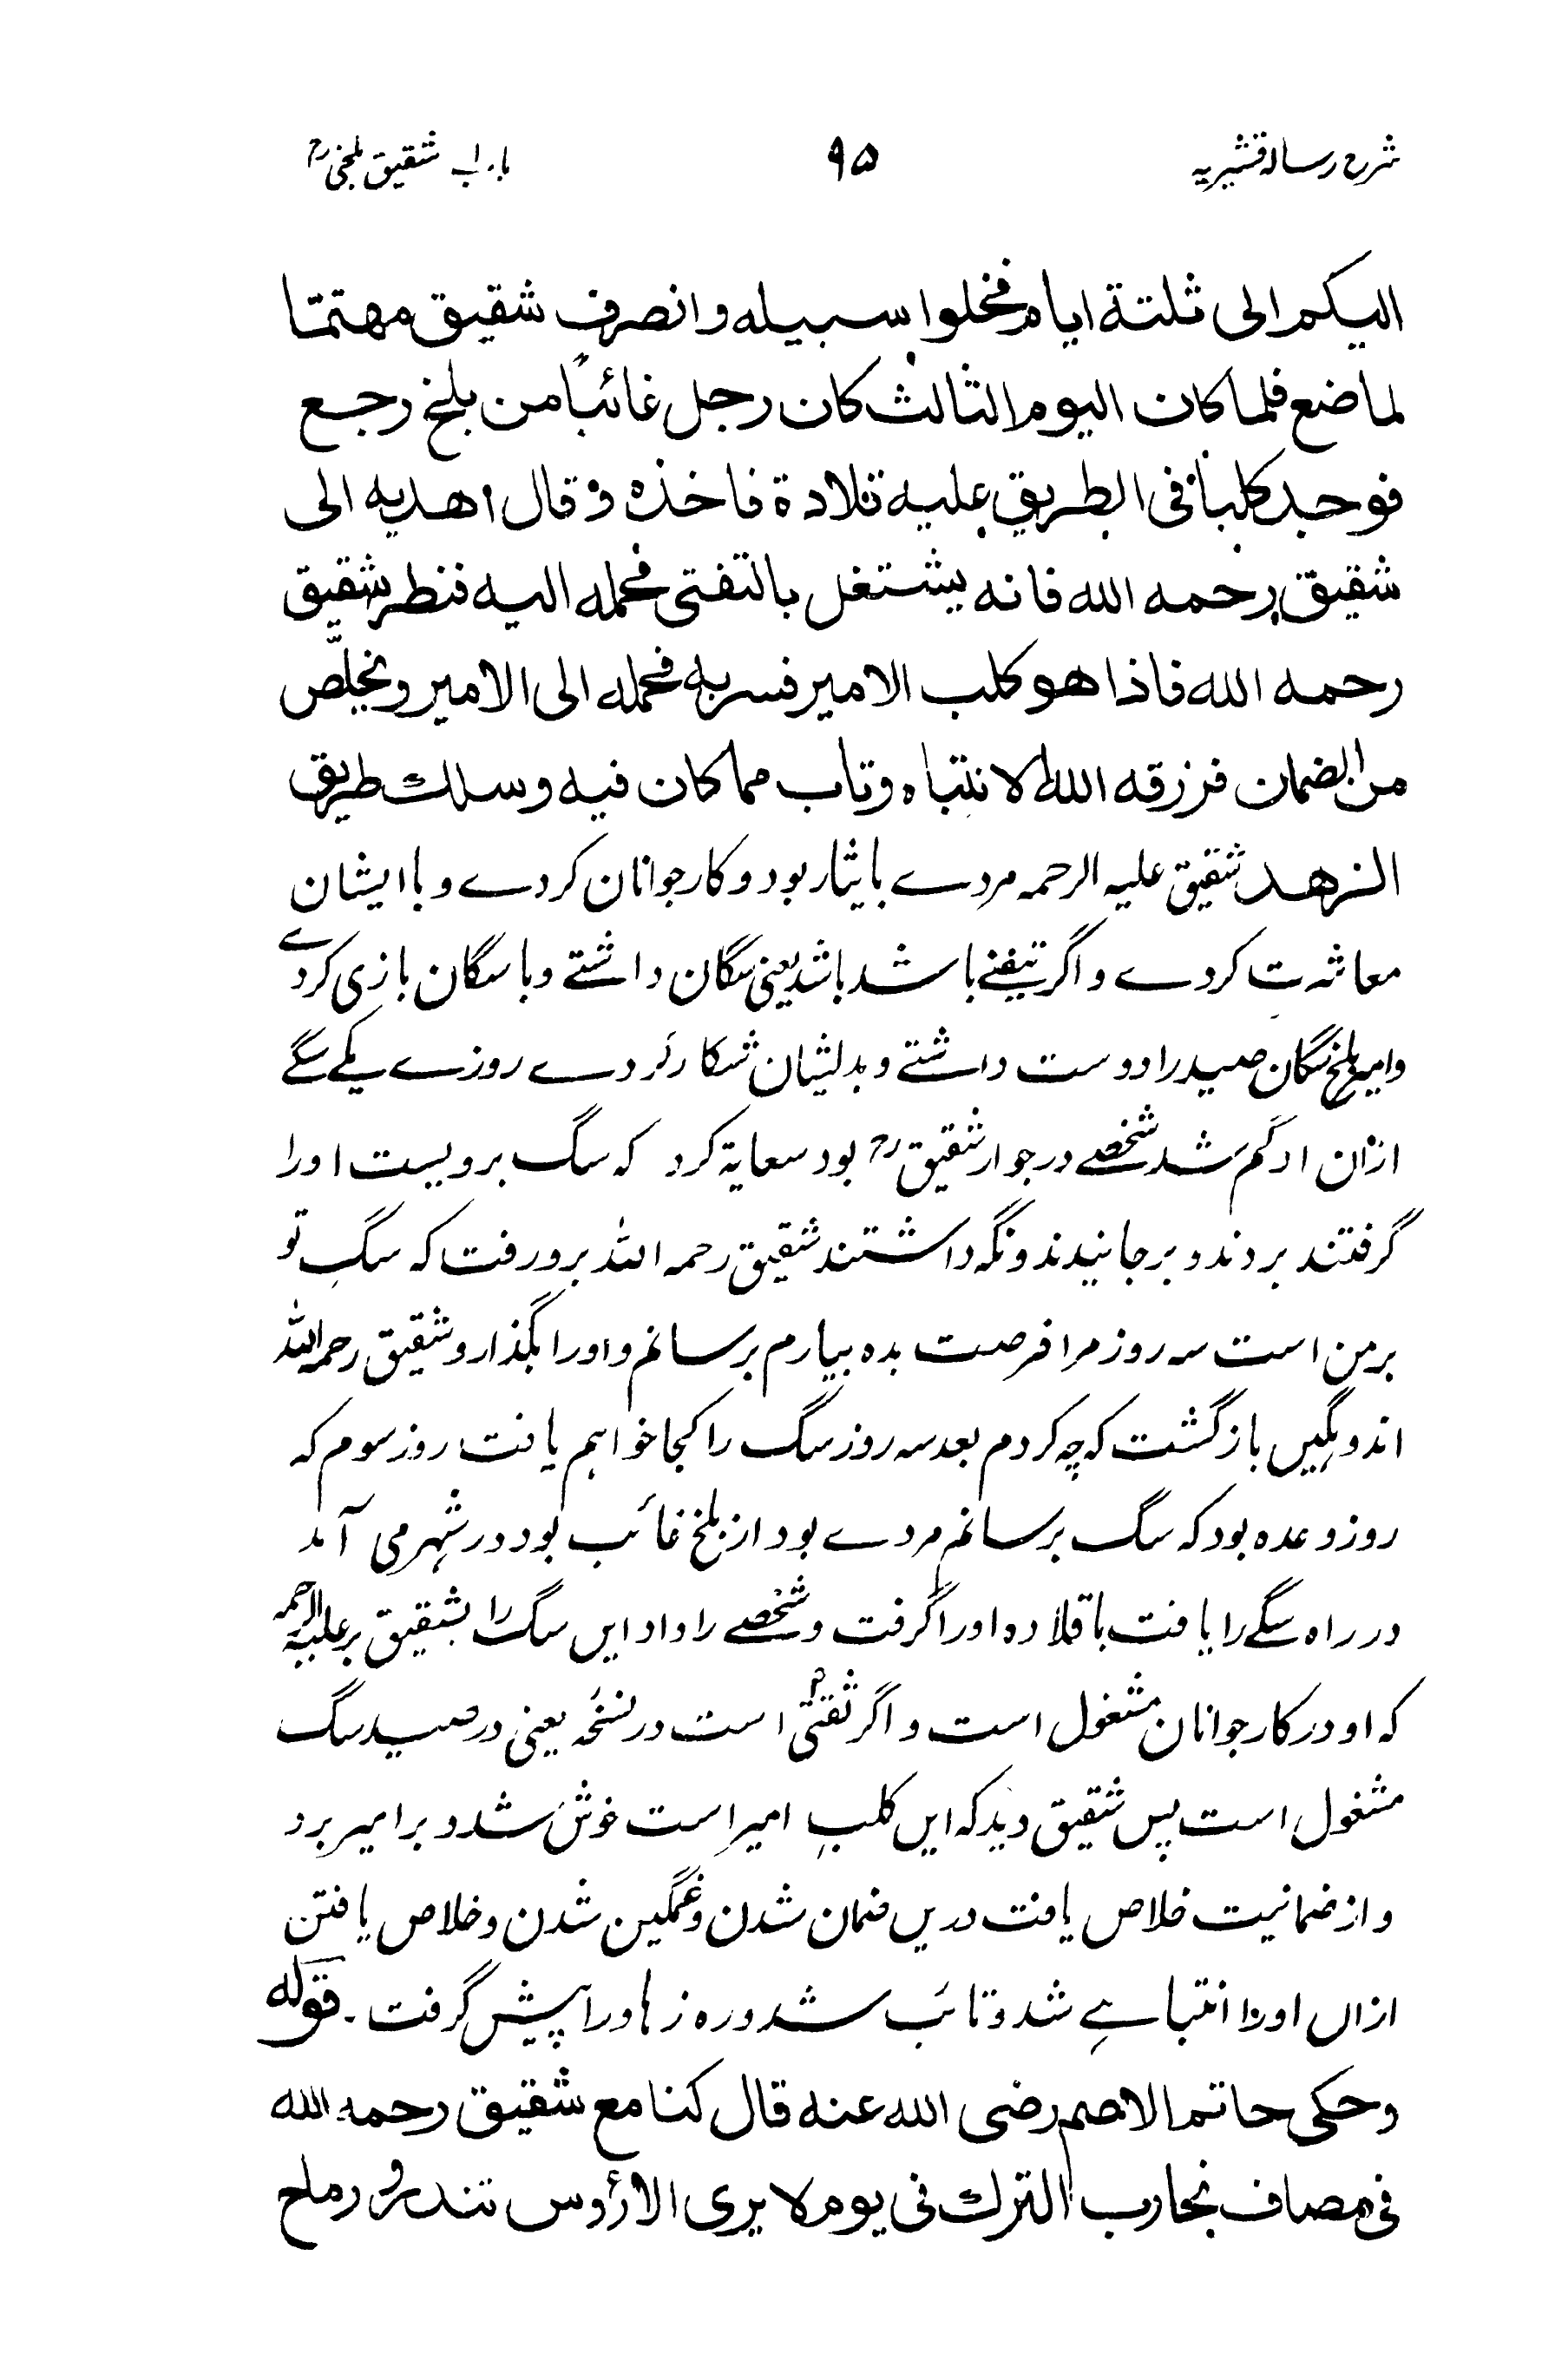 شرح رسالہ قشیریہ ۹۵ باب شقیق بلخیؒ
الیکم الی ثلثة ایام فخلوا سبیله وانصرف شقیق مهتمّا
لما ضع فلما کان الیوم الثالث کان رجل غائبًا من بلخ رجع
فوجد کلبا فی الطریق علیه قلادة فاخذه و قال اهدیه الی
شقیق رحمه الله فانه یشتغل بالتفتی فحمله الیه فنظر شقیق
رحمه الله فاذا هو کلب الامیر فسر به فحمله الی الامیر وتخلّص
من الضمان فرزقه الله الانتباه وتاب مما کان فیه وسلك طریق
الزهد شقیق علیہ الرحمہ مردے بایثار بود و کار جوانان کردے و با ایشان
معاشرت کردے و اگر تیفنے باشد باشد یعنی سگان داشتے و با سگان بازی کردے
وامیر بلخ سگان صید را دوست داشتے و بدیشان شکار کردے روزے یکے سگے
ازان او گم شد شخصے در جوار شقیقؒ بود سعایة کرد که سگ برویست او را
گرفتند بردند و برجانیدند و نگه داشتند شقیق رحمه الله برو رفت که سگِ تو
بر من است سه روز مرا فرصت بده بیارم برسانم و اورا بگذار و شقیق رحمه الله
اندوہگیں باز گشت که چه کردم بعد سه روز سگ را کجا خواہم یافت روز سوم که
روز وعده بود که سگ برسانم مردے بود از بلخ غائب بود در شہر می آمد
در راه سگے را یافت با قلاده اورا گرفت و شخصے را داد ایں سگ را بشقیق بر علیہ الرحمه
که او در کار جوانان مشغول است و اگر ثقتی است در نسخه یعنی در صید سگ
مشغول است پس شقیق دید که ایں کلبِ امیر است خوش شد و بر امیر برد
و از ضمانیت خلاص یافت دریں ضمان شدن و غمگین شدن و خلاص یافتن
ازاں اورا انتباہے شد و تائب شد و ره زہا ورا پیش گرفت۔ قوله
وحکی حاتم الاصم رضی الله عنه قال کنا مع شقیق رحمه الله
فی مصاف نحارب الترك فی یوم لا یری الا رؤوس تندر و رماح